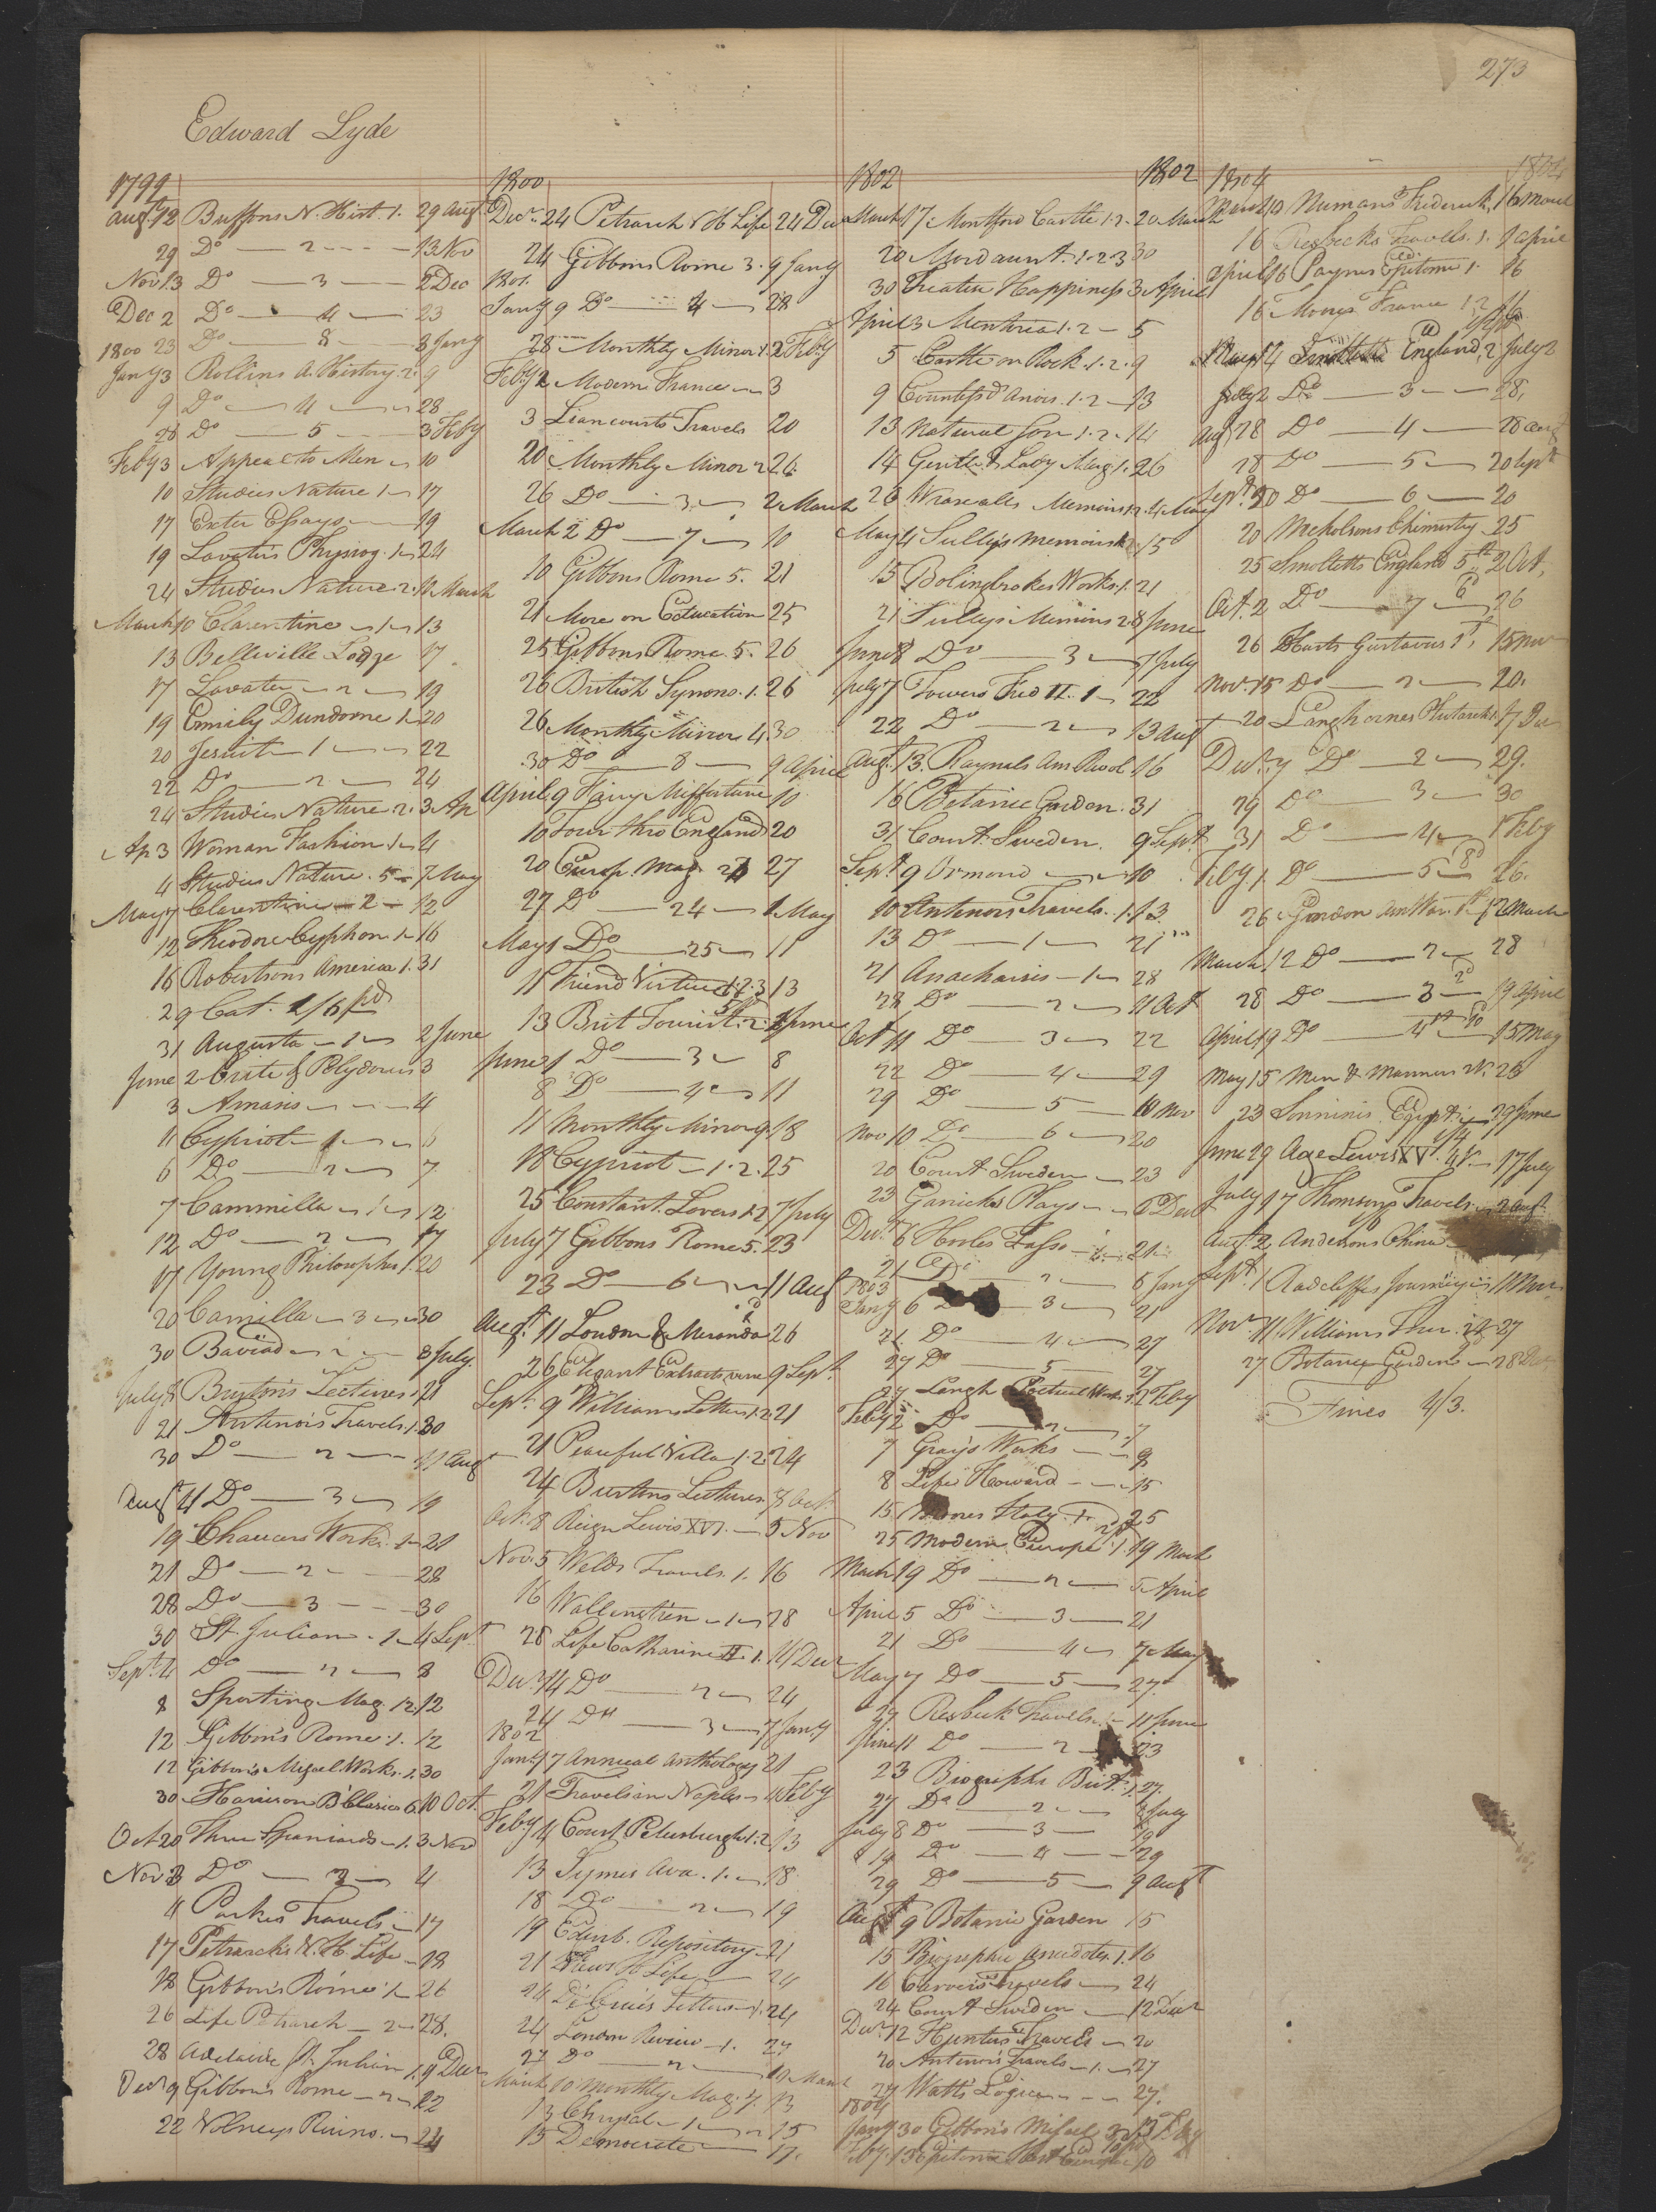 273
Edward Lyde
1799
Augt 12 Buffons N. Hist. 1. 29 Augt
29 Do — 2 - - - - 13 Nov
Nov 13 Do — 3 — 2 Dec
Dec 2 Do — 4 — 23
1800 23 Do — 8 — 3 Jany
Jany 3 Rollins A. History. 2. 9
9 Do — 4 — 28
28 Do — 5 - - - 3 Feby
Feby 3 Appeal to Men — 10
10 Studies Nature 1 — 17
17 Exeter Essays — 19
19 Lavater's Physiog. 1 — 24
24 Studies Nature. 2. 10 March
March 10 Clarentine — 1 — 13
13 Belleville Lodge 17
17 Lavater — 2 — 19
19 Emily Dundorne 1. 20
20 Jesuit — 1 — 22
22 Do — 2 — 24
24 Studies Nature. 2. 3 Ap
Ap 3 Woman Fashion 1 — 4
4 Studies Nature. 5 — 7 May
May 7 Clarentine — 2 — 12
12 Theodore Cyphon. 1 — 16
16 Robertsons America 1. 31
29 Cat. 2/6 pd
31 Augusta — 1 — 2 June
June 2 Crito & Polydorus 3
3 Amasis — 4
4 Cypriot — 1 — 6
6 Do — 2 — 7
7 Cammilla — 1 — 12
12 Do — 2 — 17
17 Young Philosopher 1. 20
20 Camilla — 3 — 30
30 Baviad — 8 July
July 8 Bryton's Lectures 21
21 Antenors Travels. 1. 30
30 Do — 2 — 11 Augt
Augt 11 Do — 3 — 19
19 Chaucers Works. 1 — 21
21 Do — 2 — 28
28 Do — 3 - - - 30
30 St. Julian. 1 — 4 Sept
Sept 4 Do — 2 — 8
8 Sporting Mag. 12. 12
12 Gibbon's Rome. 1. 12
12 Gibbon's Miscel Works. 1. 30
30 Harrison B Classics 6. 10 Oct
Oct 20 Three Spaniards — 1. 3 Nov
Nov 3 Do — 2 — 4
4 Parkes Travels — 17
17 Petrarch's N. H. Life — 18
18 Gibbon's Rome 1 — 26
26 Life Petrarch — 2 — 28.
28 Adelaide St. Julian. 1. 9 Decr
Decr 9 Gibbon's Rome — 2 — 22
22 Volneys Ruins. — 24
1800
Decr 24 Petrarch N H Life 24 Decr
24 Gibbons Rome 3. 9 Jany
1801
Jany 9 Do — 4 — 28
28 Monthly Mirror 1. 2 Feby
Feby 2 Modern France — 3
3 Liancourts Travels 20
20 Monthly Mirror 2. 26
26 Do — 3 — 2 March
March 2 Do — 7 — 10
10 Gibbons Rome 5. 21
21 More on Education 25
25 Gibbons Rome. 5. 26
26 British Synono. 1. 26
26 Monthly Mirror 4. 30
30 Do — 8 — 9 April
April 9 Fairy Misfortune 10
10 Tour thro England 20
20 Europ. Mag. 23 27
27 Do — 24 — 1 May
May 1 Do — 25 — 11
11 Friend Virtue 1. 2. 3 13
13 Brit Tourist. 2. 1 June
June 1 Do — 3 — 8
8 Do — 4 — 11
11 Monthly Mirror 9. 18
18 Cypriot — 1. 2. 25
25 Constant Lovers 1. 2 7 July
July 7 Gibbons Rome 5. 23
23 Do — 6 — 11 Augt
Augt 11 London & Miranda 26
26 Elegant Extracts verse 9 Sept.
Sept. 9 Williams Letters 1. 2 21
21 Peaceful Villa 1. 2. 24
24 Burtons Lectures. 8 Oct.
Oct. 8 Reign Lewis XVI. — 5 Nov
Nov. 5 Welds Travels. 1. 16
16 Wallenstein — 1 — 28
28 Life Catharine II. 1. 14 Decr
Decr 14 Do — 2 — 24
24 Do — 3 — 7 Jany
1802
Jany 7 Annual Anthology 21
21 Travels in Naples — 4 Feby
Feby 4 Court Petersburgh 1. 2 13
13 Symes Ava. 1. — 18
18 Do — 2 — 19
19 Edinb. Repository — 21
21 N H Life — 24
24 Letters — 1. 24
24 London Review — 1. 27
27 Do — 2 — 10 March
March 10 Monthly Mag. 7. 13
13 Chrysal — 1 — 15
15 Democrite — 17.
1802
March 17 Montford Castle 1. 2. 20 March
20 Mordaunt. 1. 2 3 30
30 Treatise Happiness 3 April
April 3 Mentoria 1. 2 — 5
5 Castle on Rock. 1. 2. 9
9 Countess d'Anois. 1. 2 — 13
13 Natural Son 1. 2. 14
14 Gentle & Lady Mag 1. 26
26 Wraxalls Memoirs 1. 2. 4 May
May 4 Sully's Memoirs 1. 15
15 Bolingbrokes Works. 1. 21
21 Sullys Memoirs 2. 8 June
June 8 Do — 3 — 7 July
July 7 Towers Fred II. 1 — 22
22 Do — 2 — 13 Augt
Augt. 13. Raynals Am Revol. 16
16 Botanic Garden. 31
31 Court Sweden. 9 Sept
Sept 9 Ormond — 10
10 Antenors Travels. 1. 13
13 Do — 1 — 21
21 Anacharsis — 1 — 28
28 Do — 2 — 11 Oct
Oct 11 Do — 3 — 22
22 Do — 4 — 29
29 Do — 5 — 10 Nov
Nov 10 Do — 6 — 20
20 Court Sweden — 23
23 Garricks Plays — 6 Decr
Decr 6 Hooles Tasso — 1. — 21
21 Do — 2 — 6 Jany
1803
Jany 6 — 3 — 21
21 Do — 4 — 27
27 Do — 5 — 27
27 Langh Poetical Works 1. 2 Feby
Feby 2 Do — 2 — 7
7 Gray's Works — 8
8 Life Howard — 15
15 Moores Italy. 1. 25
25 Modern Europe 1. 19 March
March 19 Do — 2 — 5 April
April 5 Do — 3 — 21
21 Do — 4 — 7 May
May 7 Do — 5 — 27.
27 Resbeck Travels 1 — 11 June
June 11 Do — 2 — 23
23 Biographa Brit. 1. 27.
27 Do — 2 — 8 July
July 8 Do — 3 — 19
19 Do — 4 — 29
29 Do — 5 — 9 Augt
Augt 9 Botanic Garden 15
15 Biographic Anecdotes. 1. 16
16 Carvers Travels — 24
24 Court Sweden — 12 Decr
Decr 12 Hunters Travels — 20
20 Antenor's Travels — 1. — 27
27 Watts Logic — 27.
1804
Jany 30 Gibbon's Miscel 3. 13 Feby
Feby. 13 Epitome
1802
1804
1804
March 10 Numans Frederick, 16 March
16 Resbecks Travels. 1. 9 April
April 16 Paynes Epitome 1. 16
16 Moores France 1. 2
Smolletts England, 2 July 2
July 2 Do — 3 — 28,
28 Do — 4 — 28 Augt
Augt 28 Do — 5 — 20 Sept
Sept. 20 Do — 6 — 20
20 Nicholsons Chimistry 25
25 Smolletts England 5th 2 Oct,
Oct. 2 Do — 7 — 26
26 Harts Gustavus 1st, 15 Nov
Nov. 15 Do — 2 — 20.
20 Langhornes Plutarch 1. 7 Decr
Decr. 7 Do — 2 — 29.
29 Do — 3 — 30
31 Do — 4 — 1 Feby
Feby 1. Do — 5 — 26.
26 Gordon Am War. 1st 12 March
March 12 Do — 2 — 28
28 Do — 3 — 19 April
April 19 Do — 4th — 15 May
May 15 Men & Manners 23
23 Sonninis Egypt 29 June
June 29 Age Lewis XV. 17 July
July 17 Thomsons Travels — 2 Augt.
Augt 2 Andersons China
Sept. 1 Radcliffes Journeys 11 Nov
Nov. 11 Williams 27
27 Botanic Gardens — 28 Decr
Fines 4/3.